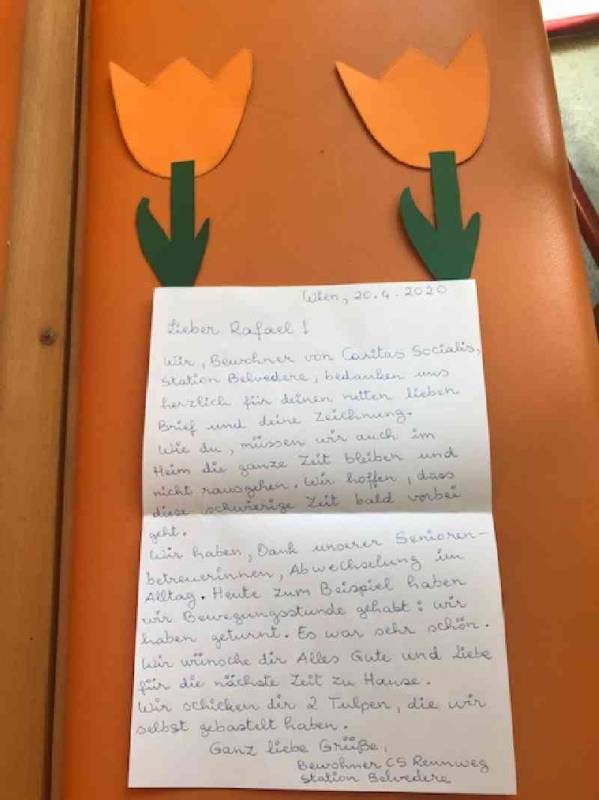 Wien, 20.4.2020
Lieber Rafael!
Wir, Bewohner von Caritas Socialis,
Station Belvedere, bedanken uns
herzlich für deinen netten lieben
Brief und deine Zeichnung.
Wie du, müssen wir auch im
Heim die ganze Zeit bleiben und
nicht rausgehen. Wir hoffen, dass
diese schwierige Zeit bald vorbei
geht.
Wir haben, Dank unserer Senioren-
betreuerinnen, Abwechslung im
Alltag. Heute zum Beispiel haben
wir Bewegungsstunde gehabt: wir
haben geturnt. Es war sehr schön.
Wir wünsche dir Alles Gute und Liebe
für die nächste Zeit zu Hause.
Wir schicken dir 2 Tulpen, die wir
selbst gebastelt haben.
Ganz liebe Grüße,
Bewohner CS Rennweg
Station Belvedere